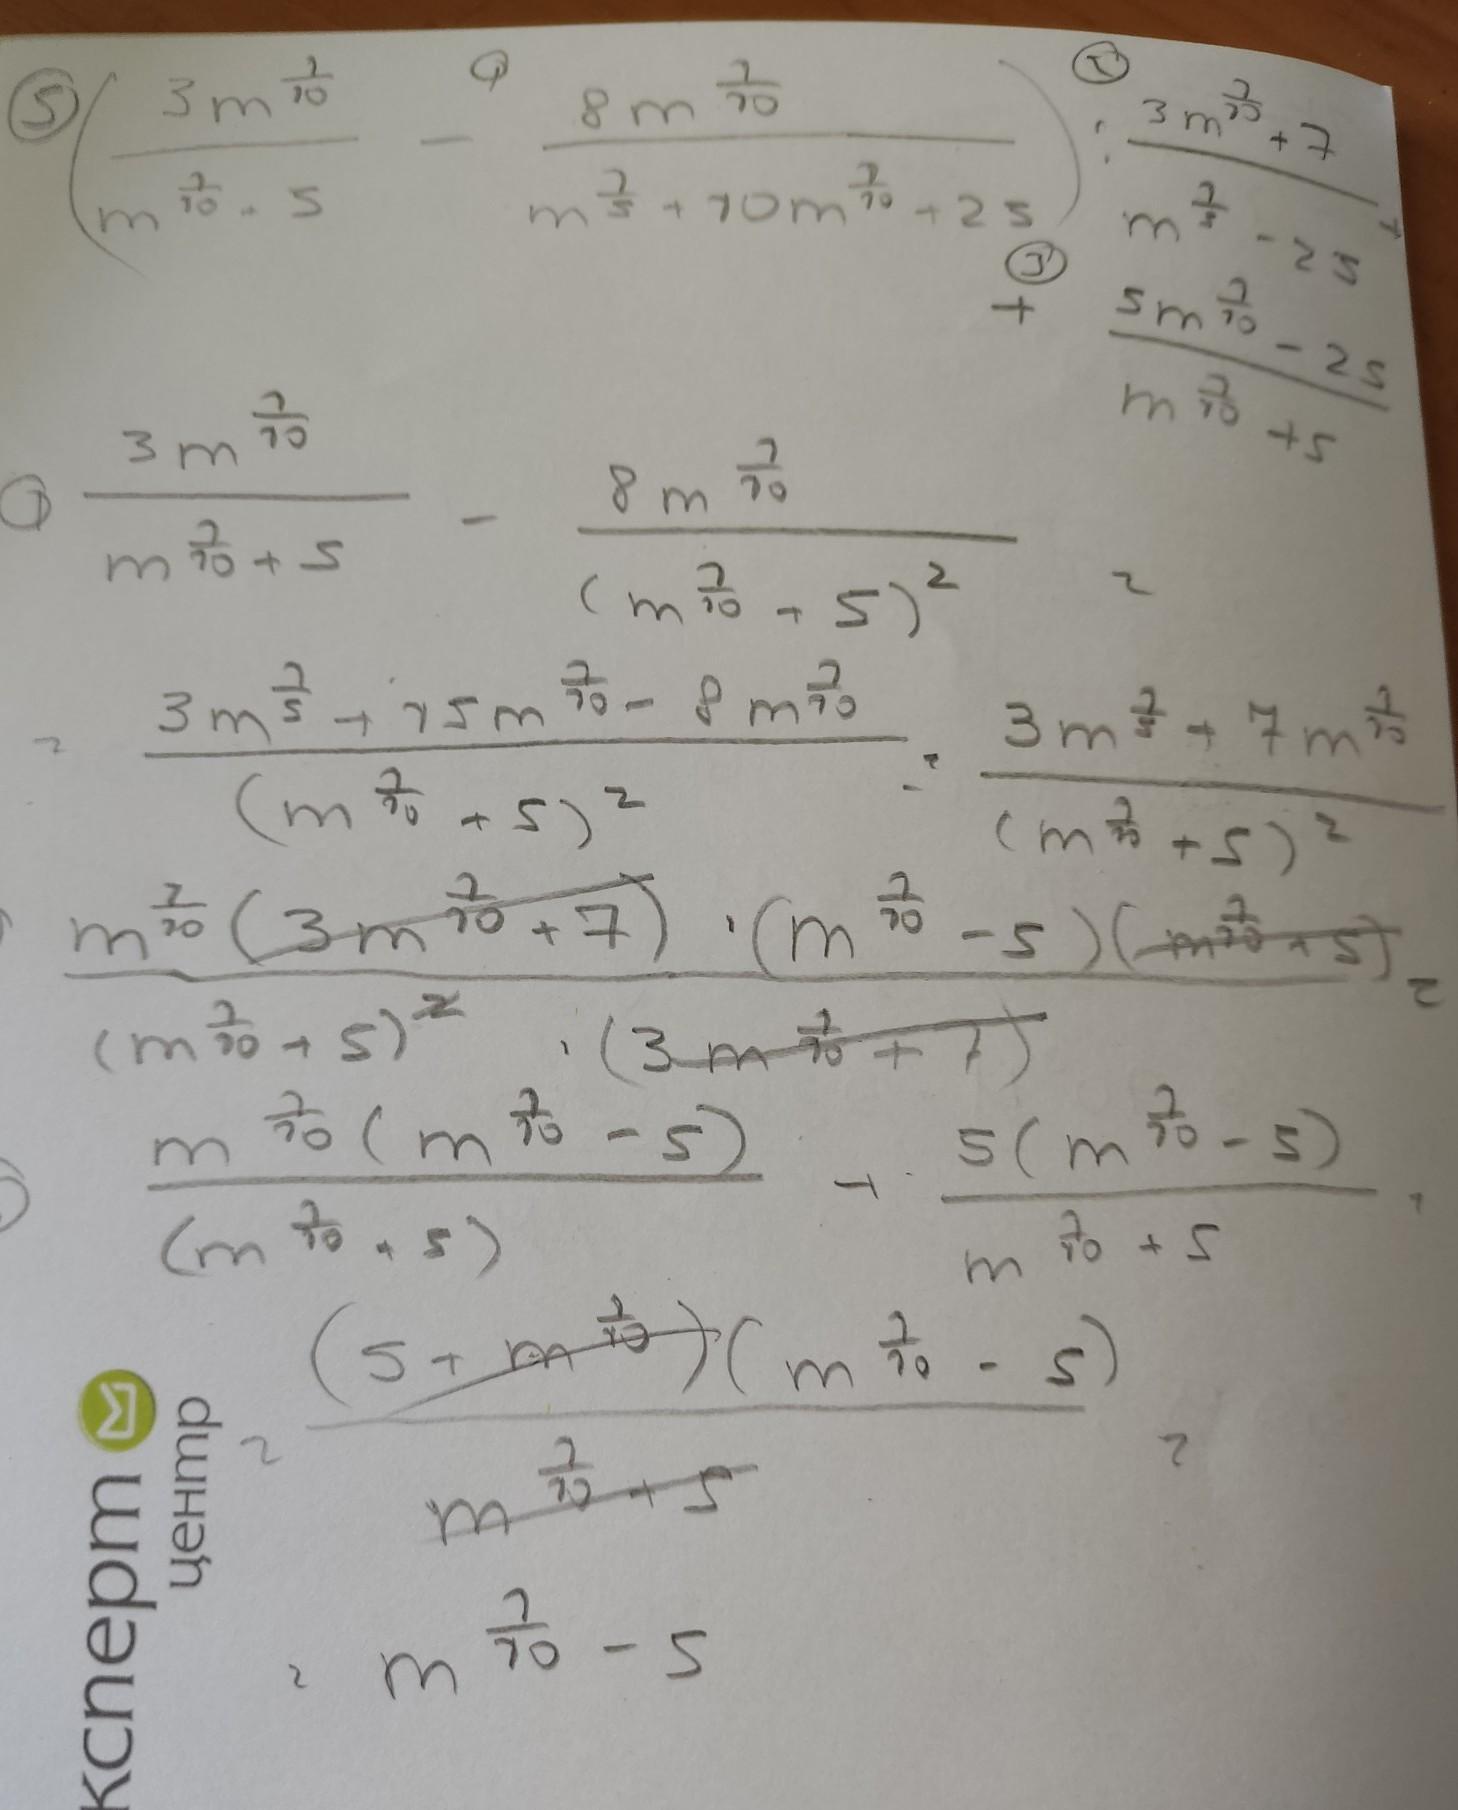 ⑤ ( 3m^(1/10) / (m^(1/10) + 5) ① − 8m^(1/10) / (m^(1/5) + 10m^(1/10) + 25) ) ② : (3m^(1/10) + 7) / (m^(1/5) − 25) +
③ + (5m^(1/10) − 25) / (m^(1/10) + 5)
① 3m^(1/10) / (m^(1/10) + 5) − 8m^(1/10) / (m^(1/10) + 5)^2 =
= (3m^(1/5) + 15m^(1/10) − 8m^(1/10)) / (m^(1/10) + 5)^2 = (3m^(1/5) + 7m^(1/10)) / (m^(1/10) + 5)^2
m^(1/10) (3m^(1/10) + 7) · (m^(1/10) − 5)(m^(1/10) + 5) / ((m^(1/10) + 5)^2 · (3m^(1/10) + 7)) =
m^(1/10) (m^(1/10) − 5) / (m^(1/10) + 5) + 5(m^(1/10) − 5) / (m^(1/10) + 5) =
= (5 + m^(1/10))(m^(1/10) − 5) / (m^(1/10) + 5) =
= m^(1/10) − 5
ксперт
центр